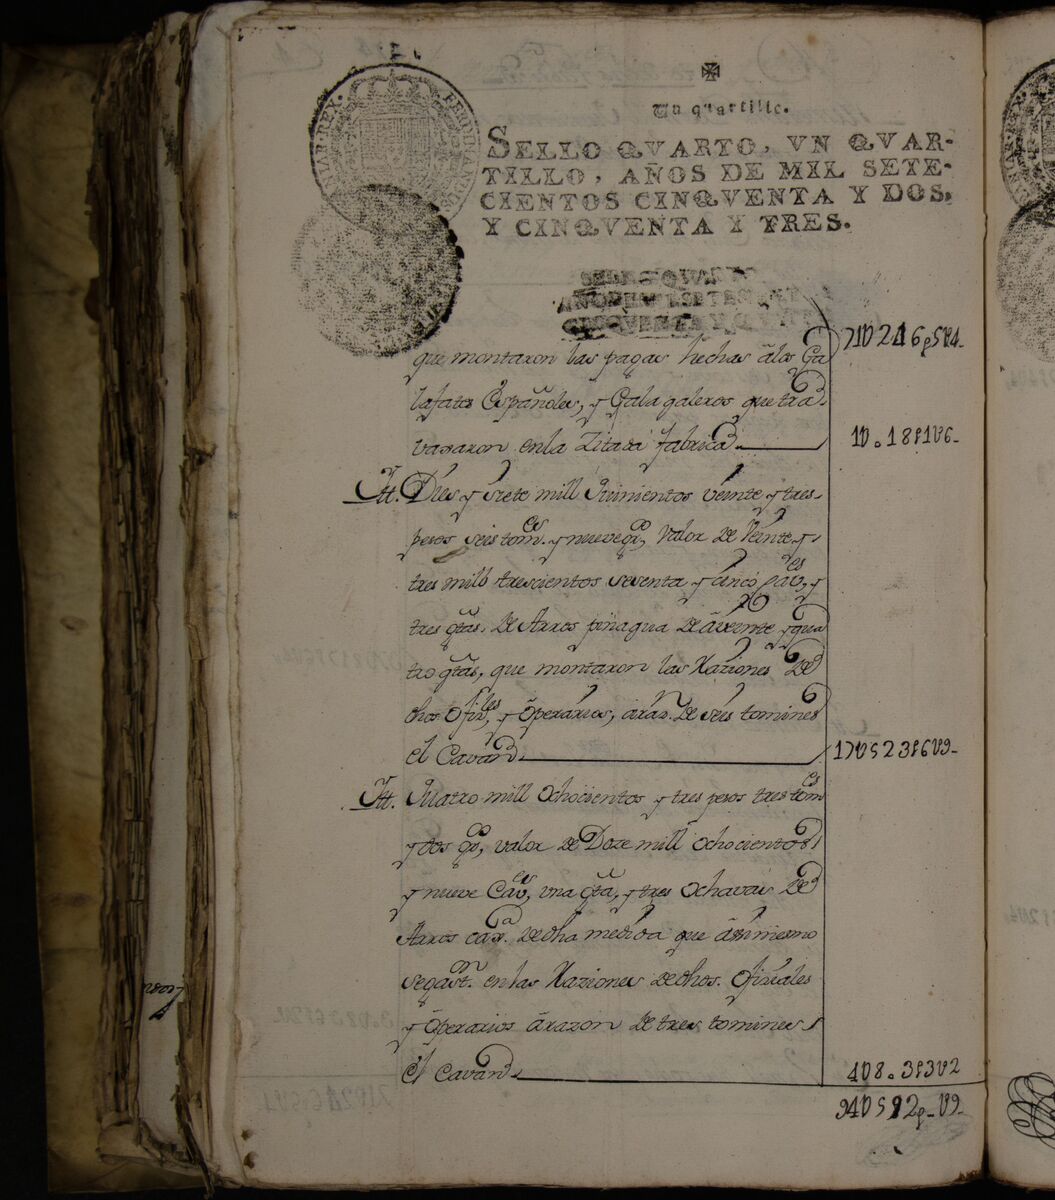 FERDINANDUS
NIAR·REX·
Un quartillo.
SELLO QVARTO, VN QVAR-
TILLO, AÑOS DE MIL SETE-
CIENTOS CINQVENTA Y DOS,
Y CINQVENTA Y TRES.
SELLO QVARTO
CINQVENTA Y
71U246p5t4-
que montaron las pagas hechas âlos Ca
lafates Españoles, y Galagaleros que tra
vaxaron enla Zitada fabrica 1U018t1U6-
Ytt. Dies y siete mill quinientos veinte y tres
pesos seis tom.es y nueve gos, valor de Veinte, y
tres mill trescientos sesenta y cinco cavs, y
tres gtas. de Arros pinagua de âveinte y qua
tro gtas, que montaron las Raziones de
dhos Ofiz.les, y ôperarios, âraz.n de seis tomines
el Cavan 17U523t6U9-
Ytt. Quatro mill ochocientos y tres pesos tres tom.es
y dos gos, valor de Doze mill ochocientos
y nueve Cavs, una gta, y tres ochavas de
Arros de dha medida que âssimismo
se gast.n en las Raziones de dhos. ofiziales
y ôperarios ârazon de tres tomines
el Cavan 4U803t3U2
94U592p-U9-